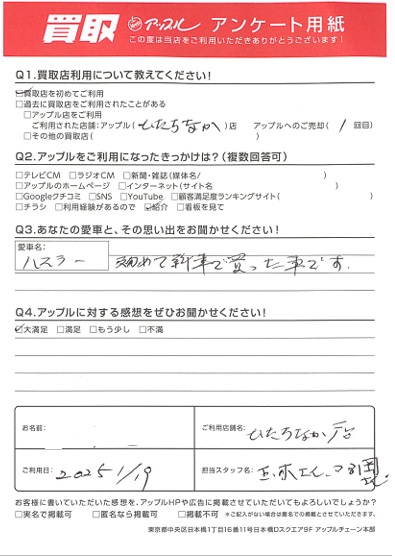 買取 アップル アンケート用紙
この度は当店をご利用いただきありがとうございます！
Q1.買取店利用について教えてください！
☑買取店を初めてご利用
□過去に買取店をご利用されたことがある
□アップル店をご利用
ご利用された店舗：アップル（ひたちなか）店 アップルへのご売却（1回目）
□その他の買取店（ ）
Q2.アップルをご利用になったきっかけは？（複数回答可）
□テレビCM □ラジオCM □新聞・雑誌（媒体名/ ）
□アップルのホームページ □インターネット（サイト名 ）
□Googleクチコミ □SNS □YouTube □顧客満足度ランキングサイト（ ）
□チラシ □利用経験があるので ☑紹介 □看板を見て
Q3.あなたの愛車と、その思い出をお聞かせください！
愛車名：
ハスラー 初めて新車で買った車です.
Q4.アップルに対する感想をぜひお聞かせください！
☑大満足 □満足 □もう少し □不満
お名前：
ご利用店舗名：
ひたちなか店
ご利用日：2025 1/19
担当スタッフ名：
お客様に書いていただいた感想を、アップルHPや広告に掲載させていただいてもよろしいでしょうか？
□実名で掲載可 □匿名なら掲載可 □掲載不可 ※ご記入がない場合は匿名での掲載とさせていただきます。
東京都中央区日本橋1丁目16番11号日本橋Dスクエア9F アップルチェーン本部